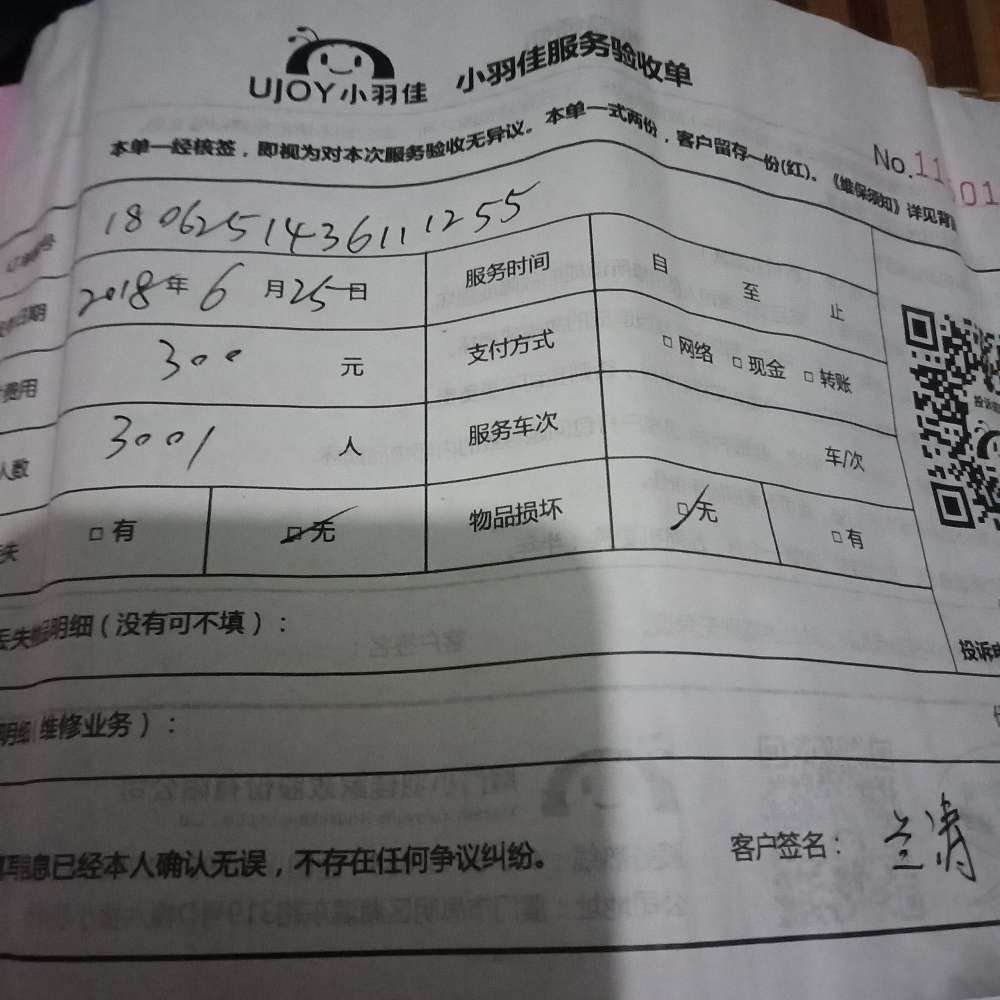 UJOY小羽佳 小羽佳服务验收单
本单一经核签，即视为对本次服务验收无异议。本单一式两份，客户留存一份(红)。《维保须知》详见背
No.11 01
号 180625143611 1255
日期 2018年6月25日 服务时间 自 至 止
费用 300 元 支付方式 □网络 □现金 □转账
人数 3001 人 服务车次 车/次
失 □有 □无 物品损坏 □无 □有
丢失物品明细（没有可不填）：
投诉
明细(维修业务）：
信息已经本人确认无误，不存在任何争议纠纷。 客户签名：